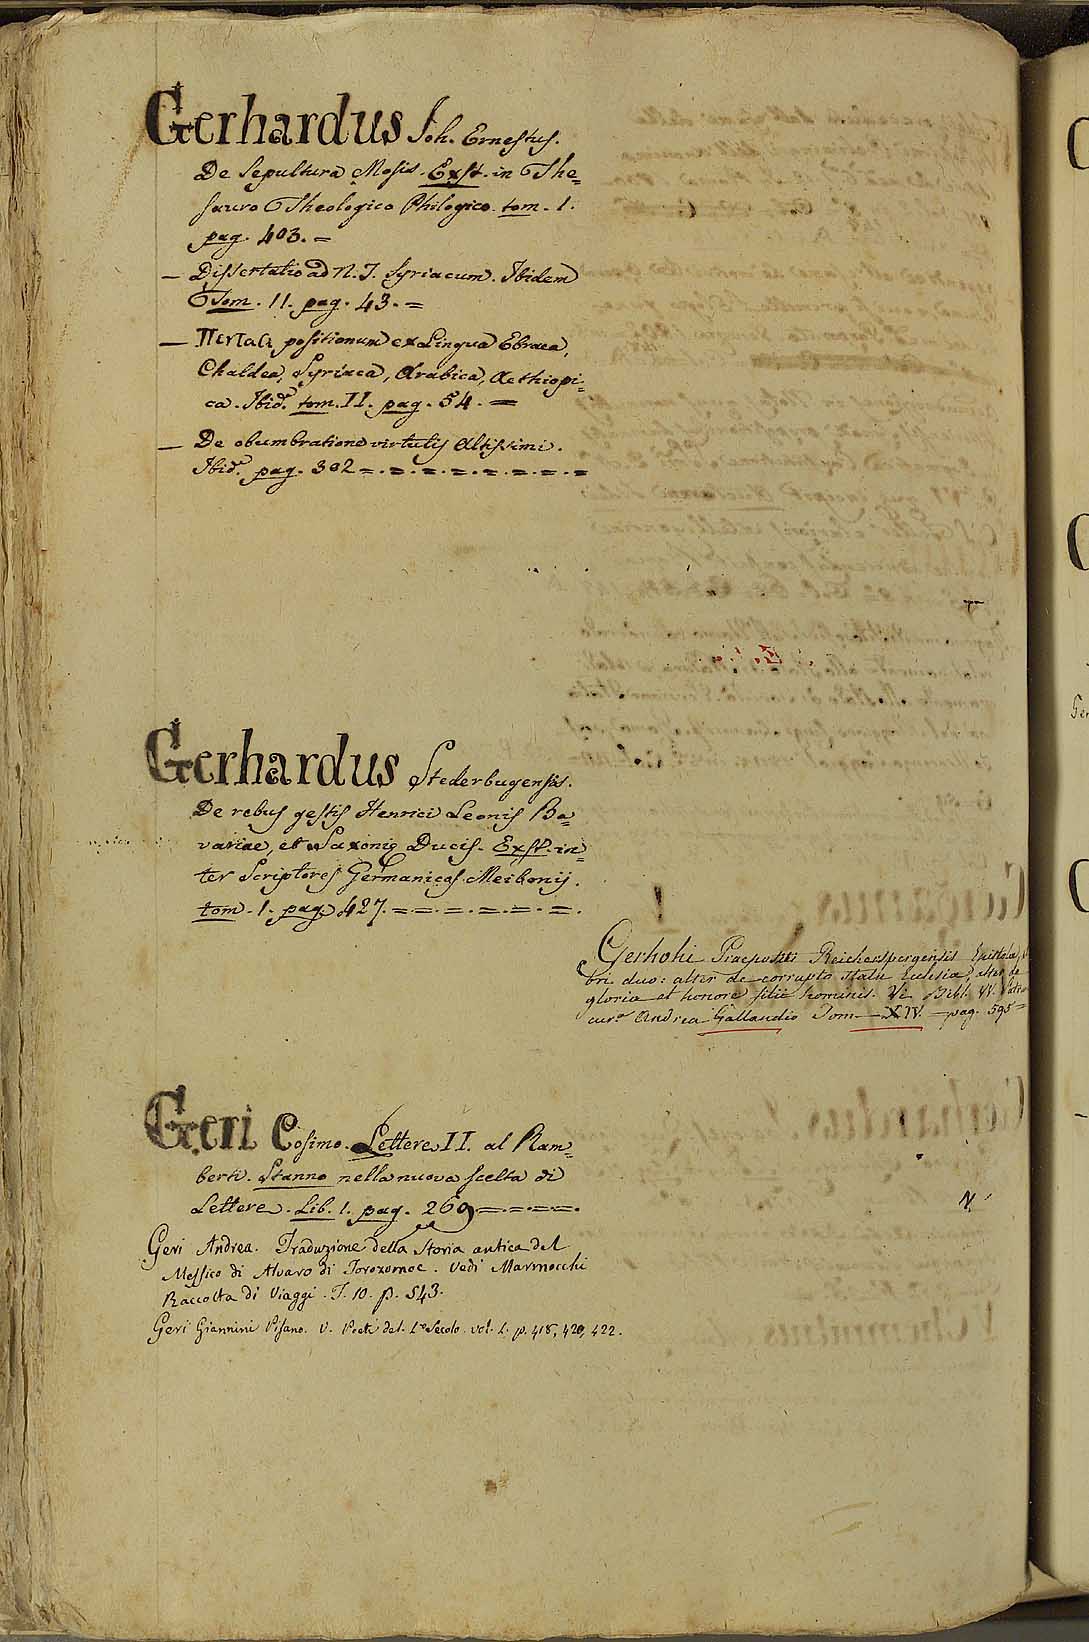 Gerhardus Joh. Ernestus.
De Sepultura Mosis. Exst. in The=
sauro Theologico Philogico. tom. 1.
pag. 403. =
— Dissertatio ad N. T. Syriacum. Ibidem
Tom. 11. pag. 43. =
— positionum ex Lingua Ebraea,
Chaldea, Syriaca, Arabica, Aethiopi=
ca. Ibid. tom. II. pag. 54. =
— De obumbratione virtutis Altissimi.
Ibid. pag. 302 =.=.=.=.=.=.=.=
Gerhardus Stederbugensis.
De rebus gestis Henrici Leonis Ba=
variae, et Saxonię Ducis. Exst. in=
ter Scriptores Germanicos Meibonij.
tom. 1. pag. 427. =.=.=.=.=.=.
Gerhohi Praepositi Reicherspergensis Epistola, li
bri duo: alter de corrupto statu Ecclesia, alter de
gloria et honore filii hominis. Ve Bibl. VV. Patrum
cura Andrea Gallandio Tom— XIV. —pag. 595=
Geri Cosimo. Lettere II. al Ram=
berti. Stanno nella nuova scelta di
Lettere. Lib. 1. pag. 269 =.=.=.=.
Geri Andrea. Traduzione della Storia antica del
Messico di Alvaro di Torozomoc. Vedi Marmocchi
Raccolta di Viaggi. T. 10. p. 543.
Geri Giannini Pisano. V. Poeti del 1.º Secolo. vol. 1. p. 418, 420, 422.